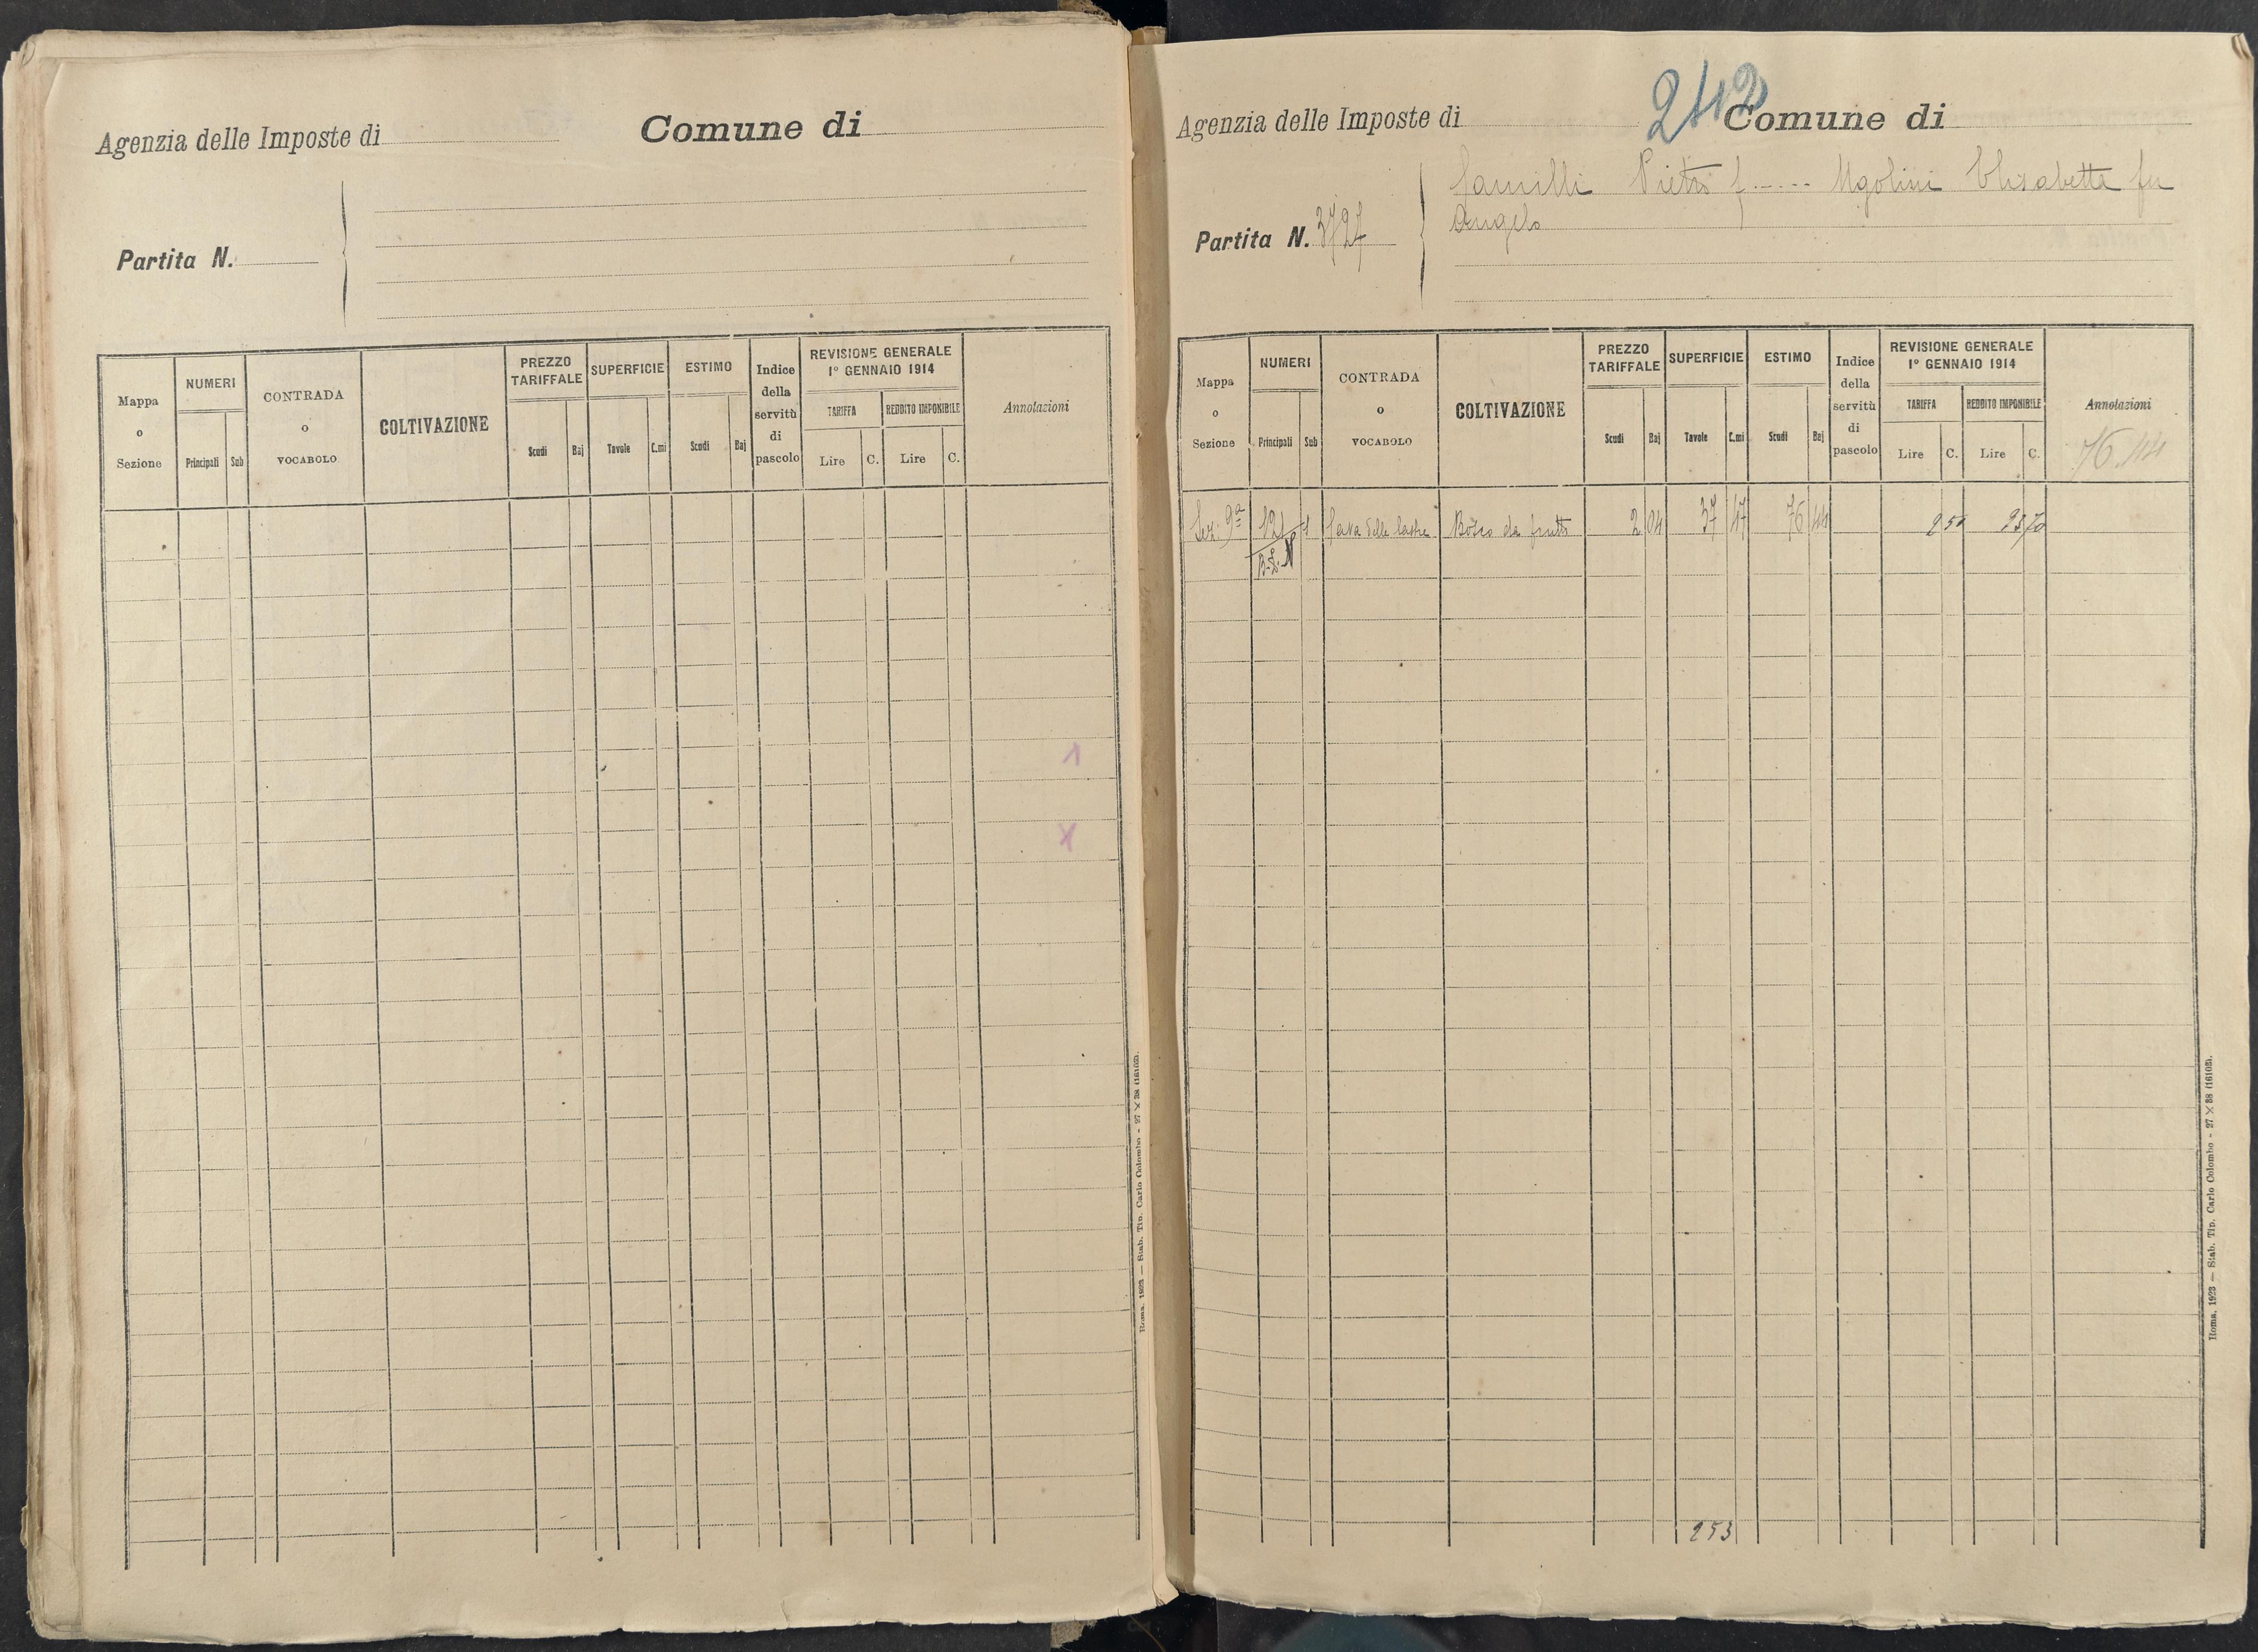 Agenzia delle Imposte di
Comune di
Partita N.
Mappa o Sezione
NUMERI
Principali
Sub
CONTRADA o VOCABOLO
COLTIVAZIONE
PREZZO TARIFFALE
Scudi
Baj
SUPERFICIE
Tavole
C.mi
ESTIMO
Scudi
Baj
Indice della servitù di pascolo
REVISIONE GENERALE
1° GENNAIO 1914
TARIFFA
REDDITO IMPONIBILE
Lire
C.
Lire
C.
Annotazioni
1
X
Roma, 1923 — Stab. Tip. Carlo Colombo - 27 × 38 (16103).
242
Agenzia delle Imposte di
Comune di
Partita N. 3727
Pietro f..... Ugolini Elisabetta fu
Angelo
Mappa o Sezione
NUMERI
Principali
Sub
CONTRADA o VOCABOLO
COLTIVAZIONE
PREZZO TARIFFALE
Scudi
Baj
SUPERFICIE
Tavole
C.mi
ESTIMO
Scudi
Baj
Indice della servitù di pascolo
REVISIONE GENERALE
1° GENNAIO 1914
TARIFFA
REDDITO IMPONIBILE
Lire
C.
Lire
C.
Annotazioni
76.44
Sez: 9ª 121 1 delle Bosco da frutto 2 04 37 47 76 44 2 50 93 70
253
Roma, 1923 — Stab. Tip. Carlo Colombo - 27 × 38 (16103).